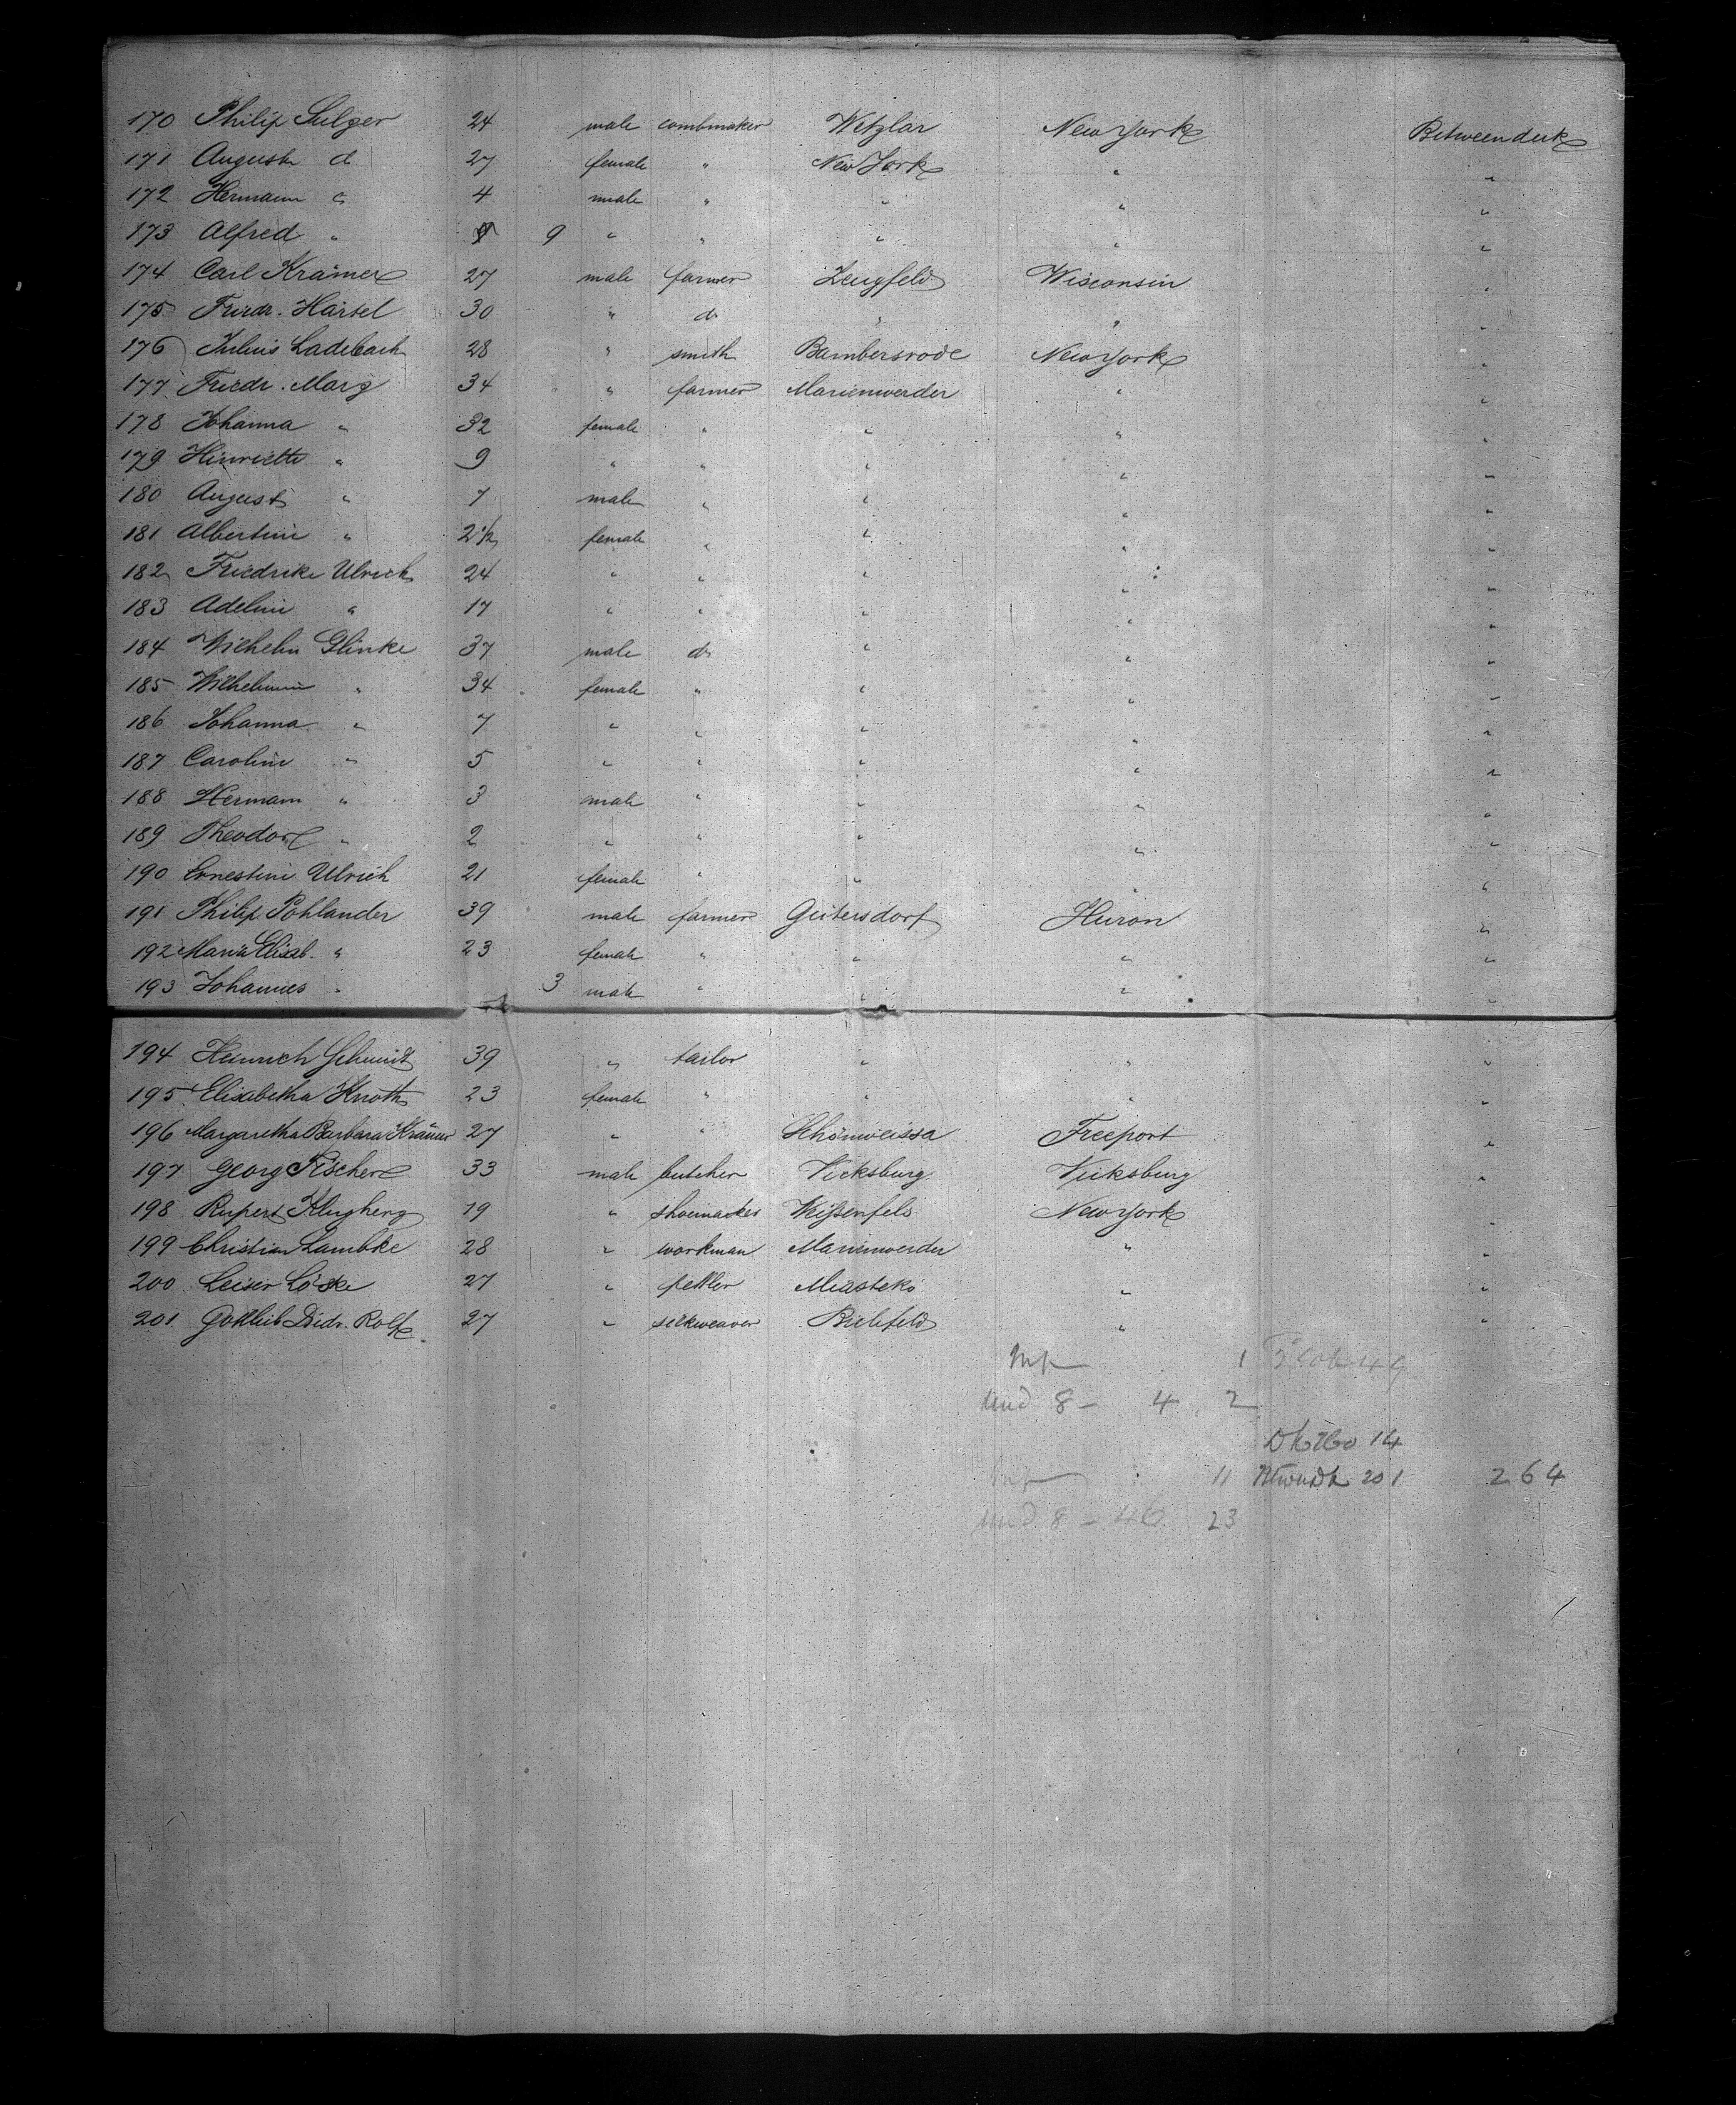 170 Philip Sulzer 24 male combmaker Wetzlar New York Betweendeck
171 Auguste d 27 female " New York " "
172 Hermann " 4 male " " " "
173 Alfred " 9 " " " " "
174 Carl Krämer 27 male farmer Zeugfeld Wisconsin "
175 Friedr. Härtel 30 " do " " "
176 Julius Ladebach 28 " smith Bambersrode New York "
177 Friedr. Marg 34 " farmer Marienwerder " "
178 Johanna " 32 female " " " "
179 Hinriette " 9 " " " " "
180 August " 7 male " " " "
181 Albertine " 2 1/2 female " " " "
182 Friedrike Ulrich 24 " " " " "
183 Adeline " 17 " " " " "
184 Wilhelm Glinke 37 male do " " "
185 Wilhelmine " 34 female " " " "
186 Johanna " 7 " " " " "
187 Caroline " 5 " " " " "
188 Hermann " 3 male " " " "
189 Theodor " 2 " " " " "
190 Ernestine Ulrich 21 female " " " "
191 Philip Pohlander 39 male farmer Geitersdorf Huron "
192 Maria Elisab. " 23 female " " " "
193 Johannes " 3 male " " " "
194 Heinrich Schmidt 39 " tailor " " "
195 Elisabetha Knoth 23 female " " " "
196 Margaretha Barbara Krämer 27 " " Schönweissa Freeport "
197 Georg Fischer 33 male butcher Vicksburg Vicksburg "
198 Rupert Klugherz 19 " shoemaker Weißenfels New York "
199 Christian Lambke 28 " workman Marienwerder " "
200 Leiser Löske 27 " pettler Miasteko " "
201 Gottlieb Diedr. Rolf 27 " silkweaver Bielefeld " "
Inf 1 49
und 8 - 4 2
14
Inf 11 201 264
und 8 - 46 23